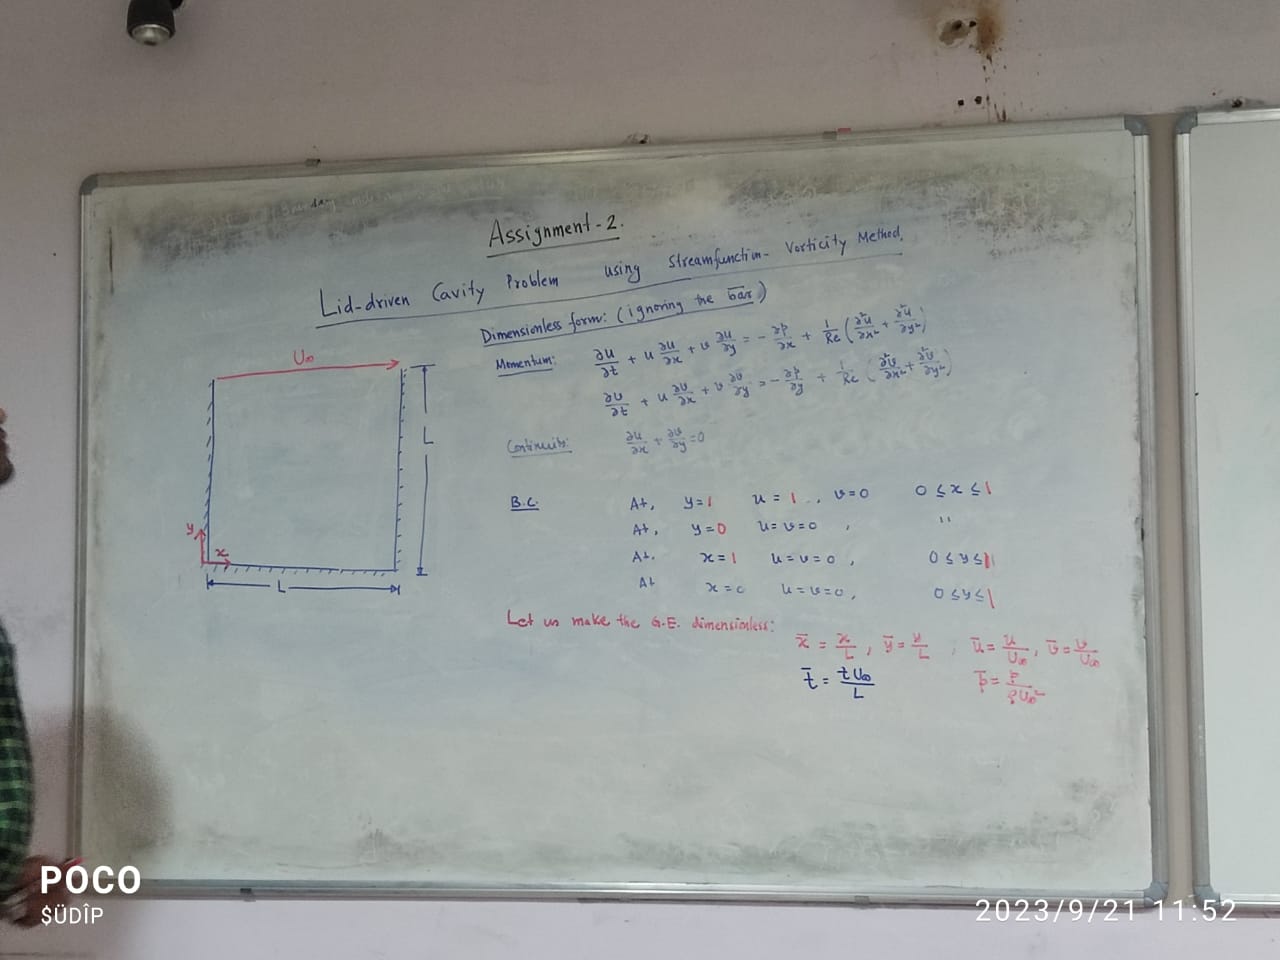 Assignment-2.
Lid-driven Cavity Problem using Streamfunction-Vorticity Method.
Dimensionless form: (ignoring the bar)
Momentum: ∂u/∂t + u ∂u/∂x + v ∂u/∂y = - ∂p/∂x + 1/Re (∂²u/∂x² + ∂²u/∂y²)
∂v/∂t + u ∂v/∂x + v ∂v/∂y = - ∂p/∂y + 1/Re (∂²v/∂x² + ∂²v/∂y²)
Continuity: ∂u/∂x + ∂v/∂y = 0
B.C. At, y=1 u = 1, v=0 0 ≤ x ≤ 1
At, y=0 u = v = 0, "
At, x=1 u = v = 0, 0 ≤ y ≤ 1
At x=0 u = v = 0, 0 ≤ y ≤ 1
Let us make the G.E. dimensionless:
x̄ = x/L, ȳ = y/L, ū = u/U∞, v̄ = v/U∞
t̄ = tU∞/L p̄ = p/ρU∞²
U∞
L
y
x
L
POCO
$ÜDÎP
2023/9/21 11:52